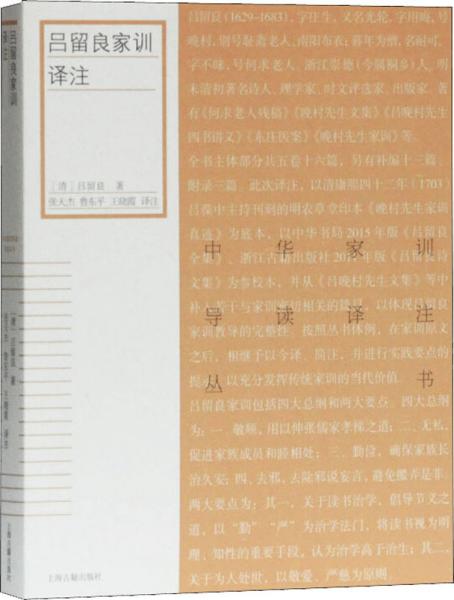 吕留良家训
译注
［清］吕留良 著
张天杰 鲁东平 王晓霞 译注
上海古籍出版社
吕留良家训
译注
［清］吕留良 著
张天杰 鲁东平 王晓霞 译注
上海古籍出版社
吕留良（1629-1683），字庄生，又名光轮，字用晦，号
晚村，别号耻斋老人、南阳布衣；暮年为僧，名耐可，
字不昧，号何求老人。浙江崇德（今属桐乡）人。明
末清初著名诗人、理学家、时文评选家、出版家。著
有《何求老人残稿》《晚村先生文集》《吕晚村先生
四书讲义》《东庄医案》《晚村先生家训》等。
全书主体部分共五卷十六篇，另有补编十三篇、
附录三篇。此次译注，以清康熙四十二年（1703）
吕葆中主持刊刻的明农草堂印本《晚村先生家训
真迹》为底本，以中华书局2015年版《吕留良
全集》、浙江古籍出版社2011年版《吕留良诗
文集》为参校本，并从《吕晚村先生文集》等中
补入若干与家训密切相关的篇目，以体现吕留良
家训教导的完整性。按照丛书体例，在家训原文
之后，相继予以今译、简注，并进行实践要点的
提示，以充分发挥传统家训的当代价值。
吕留良家训包括四大总纲和两大要点。四大总纲
为：一、敬顺，用以伸张儒家孝悌之道；二、无私，
促进家族成员和睦相处；三、勤俭，确保家族长
治久安；四、去邪，去除邪说妄言，避免搬弄是非。
两大要点为：其一，关于读书治学，倡导节文之
道，以“勤”“严”为治学法门，将读书视为明
理、知性的重要手段，认为治学高于治生；其二，
关于为人处世，以敬爱、严惫为原则。
中华家训
导读译注
丛书